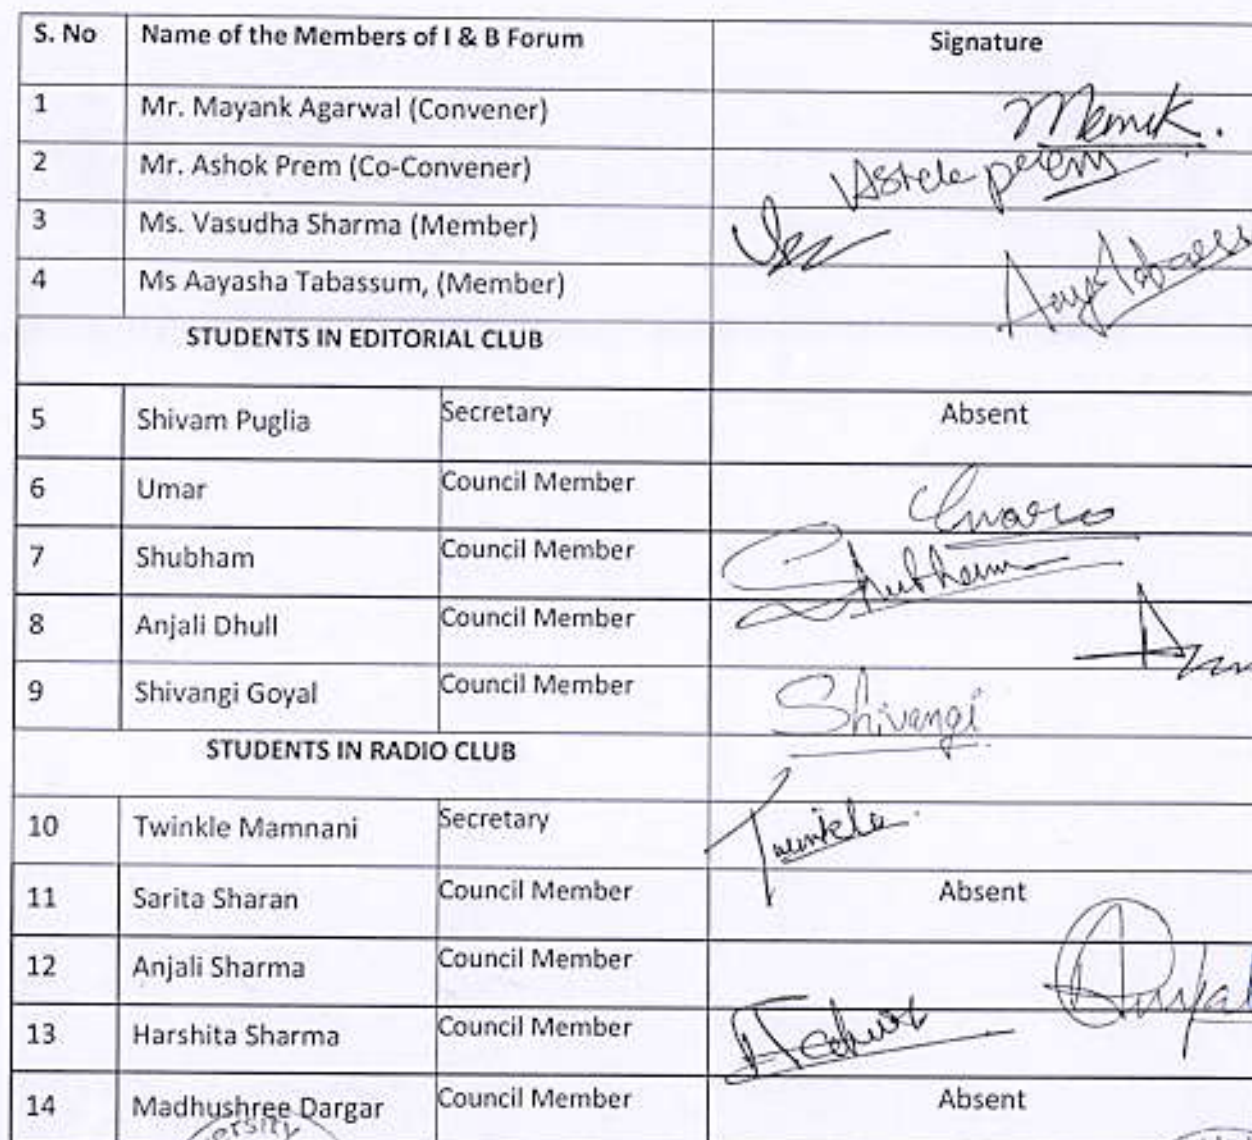 S. No Name of the Members of I & B Forum Signature
1 Mr. Mayank Agarwal (Convener)
2 Mr. Ashok Prem (Co-Convener)
3 Ms. Vasudha Sharma (Member)
4 Ms Aayasha Tabassum, (Member)
STUDENTS IN EDITORIAL CLUB
5 Shivam Puglia Secretary Absent
6 Umar Council Member
7 Shubham Council Member Shubham
8 Anjali Dhull Council Member
9 Shivangi Goyal Council Member Shivangi
STUDENTS IN RADIO CLUB
10 Twinkle Mamnani Secretary Twinkle
11 Sarita Sharan Council Member Absent
12 Anjali Sharma Council Member
13 Harshita Sharma Council Member
14 Madhushree Dargar Council Member Absent